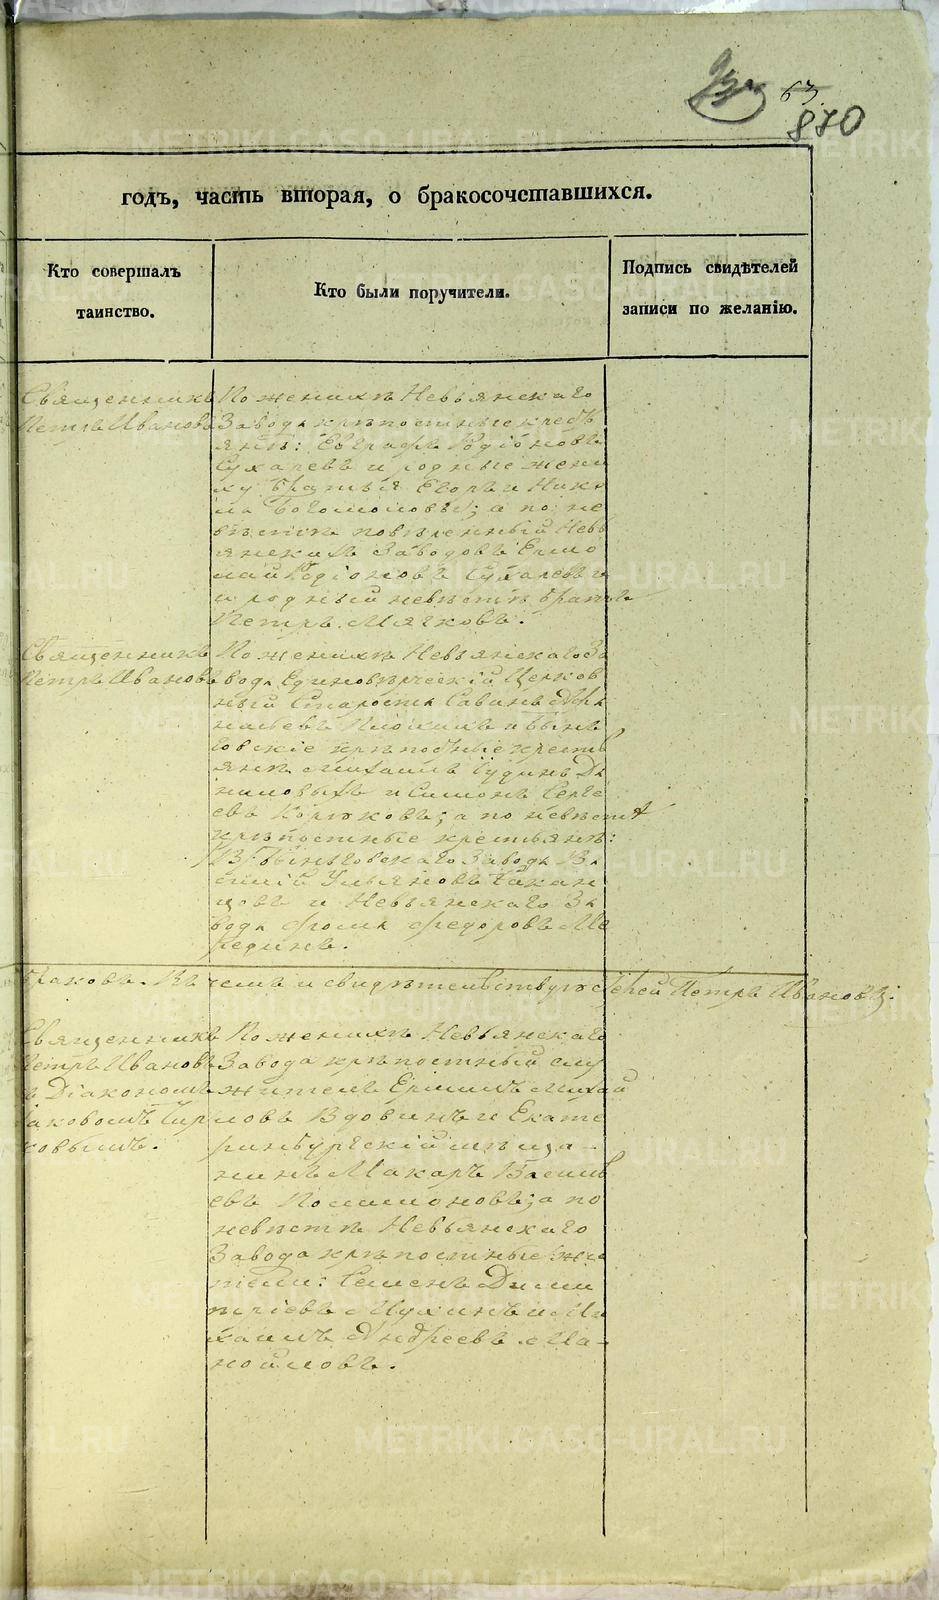 63.
870
годъ, часть вторая, о бракосочетавшихся.
Кто совершалъ
таинство.
Кто были поручители.
Подпись свидѣтелей
записи по желанію.
Священникъ
Петръ Ивановъ
По женихѣ Невьянскаго
Завода крѣпостные кресть
янъ: Евграфъ Родіоновъ
Сухаревъ и родные жени
ху братья Егоръ и Нико
ла Богомоловы; а по не
вѣстѣ повѣренный Невь
янскихъ Заводовъ Ермо
лай Родіоновъ Сухаревъ и
и родный невѣстѣ братъ
Петръ Мягковъ.
Священникъ
Петръ Ивановъ
По женихѣ Невьянскаго За
вода Единовѣрческій Церков
ный Староста Савинъ
наньевъ и Бынь
говскіе крѣпостные кресть
янѣ Михаилъ Іудинъ Да
ниловыхъ и Симонъ Серге
евъ Коржковъ; а по невѣстѣ
крѣпостные крестьянъ:
Изъ Быньговскаго Завода Ва
силій Ульяновъ Казан
цовъ и Невьянскаго За
вода Фома Федоровъ Ме
редин.
браковъ. Въ чемъ и свидѣтельствуетъ Іерей Петръ Ивановъ.
Священникъ
Петръ Ивановъ
съ Діакономъ
Іаковомъ Тир
ковымъ.
По женихѣ Невьянскаго
Завода крѣпостный слу
житель Ермилъ Михай
ловъ Вдовинъ и Екате
ринбургскій мѣща-
нинъ Макаръ Василь
евъ Полимоновъ; а по
невѣстѣ Невьянскаго
Завода крѣпостные жи
тели: Семенъ Дими
тріевъ Мухинъ и Ми
хаилъ Андреевъ Ма-
нойловъ.
METRIKI.GASO-URAL.RU